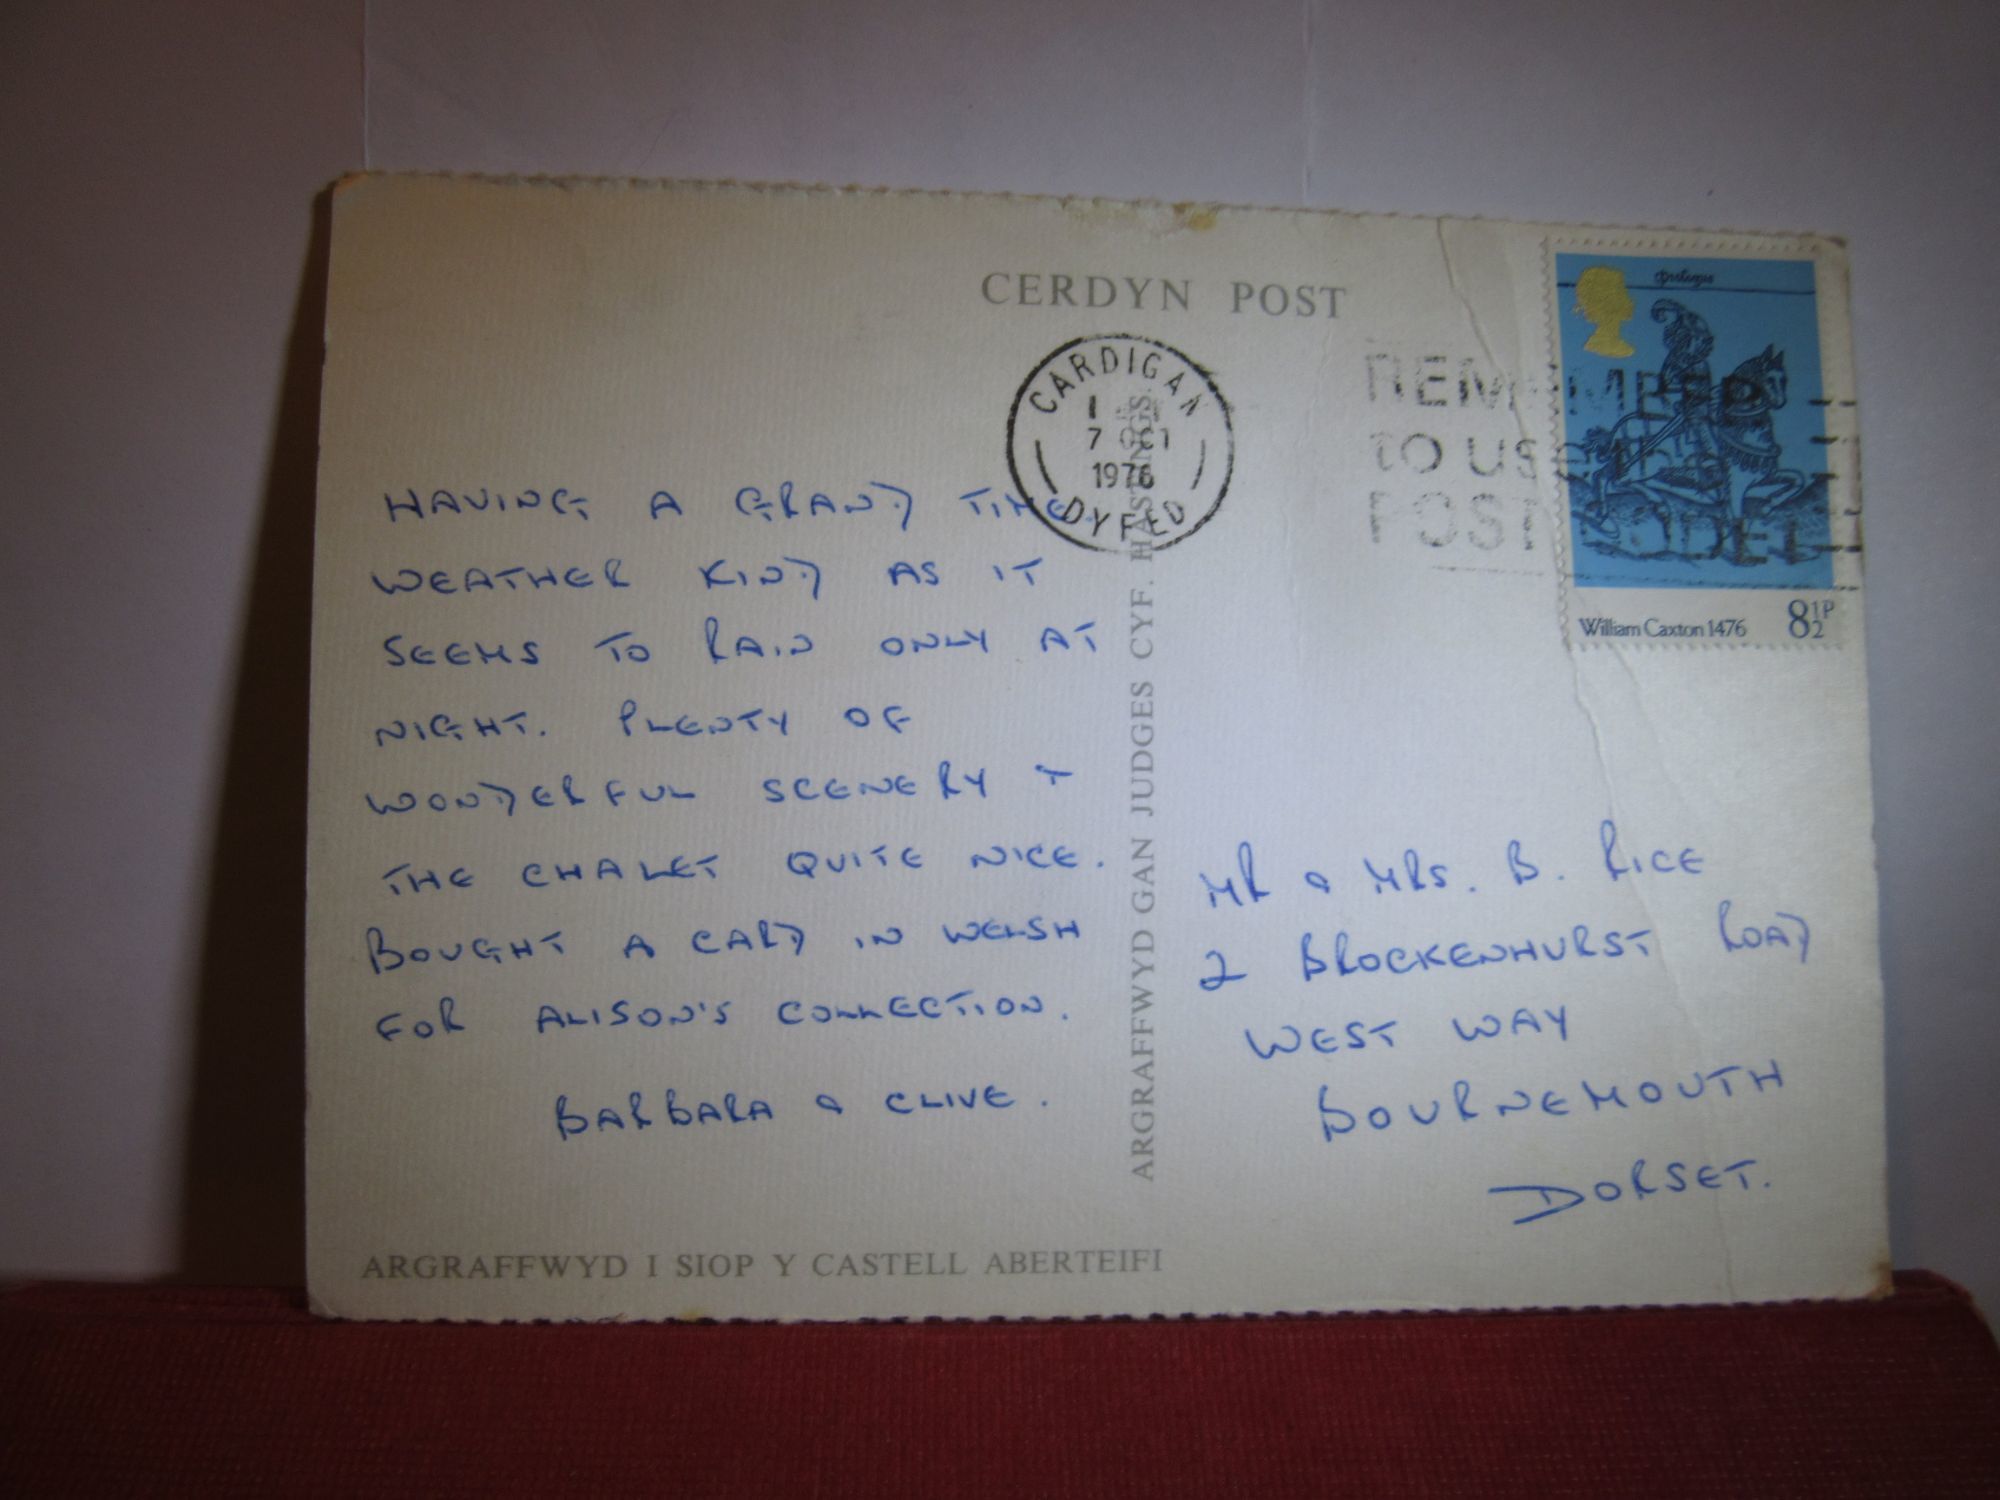 CERDYN POST
CARDIGAN
7 OCT
1976
DYFED
REMEMBER
TO USE
POST
Prologue
William Caxton 1476
8½P
HAVING A GRAND TIME.
WEATHER KIND AS IT
SEEMS TO RAIN ONLY AT
NIGHT. PLENTY OF
WONDERFUL SCENERY +
THE CHALET QUITE NICE.
BOUGHT A CARD IN WELSH
FOR ALISON'S COLLECTION.
BARBARA & CLIVE.
ARGRAFFWYD GAN JUDGES CYF. HASTINGS.
MR & MRS. B. RICE
2 BROCKENHURST ROAD
WEST WAY
BOURNEMOUTH
DORSET.
ARGRAFFWYD I SIOP Y CASTELL ABERTEIFI